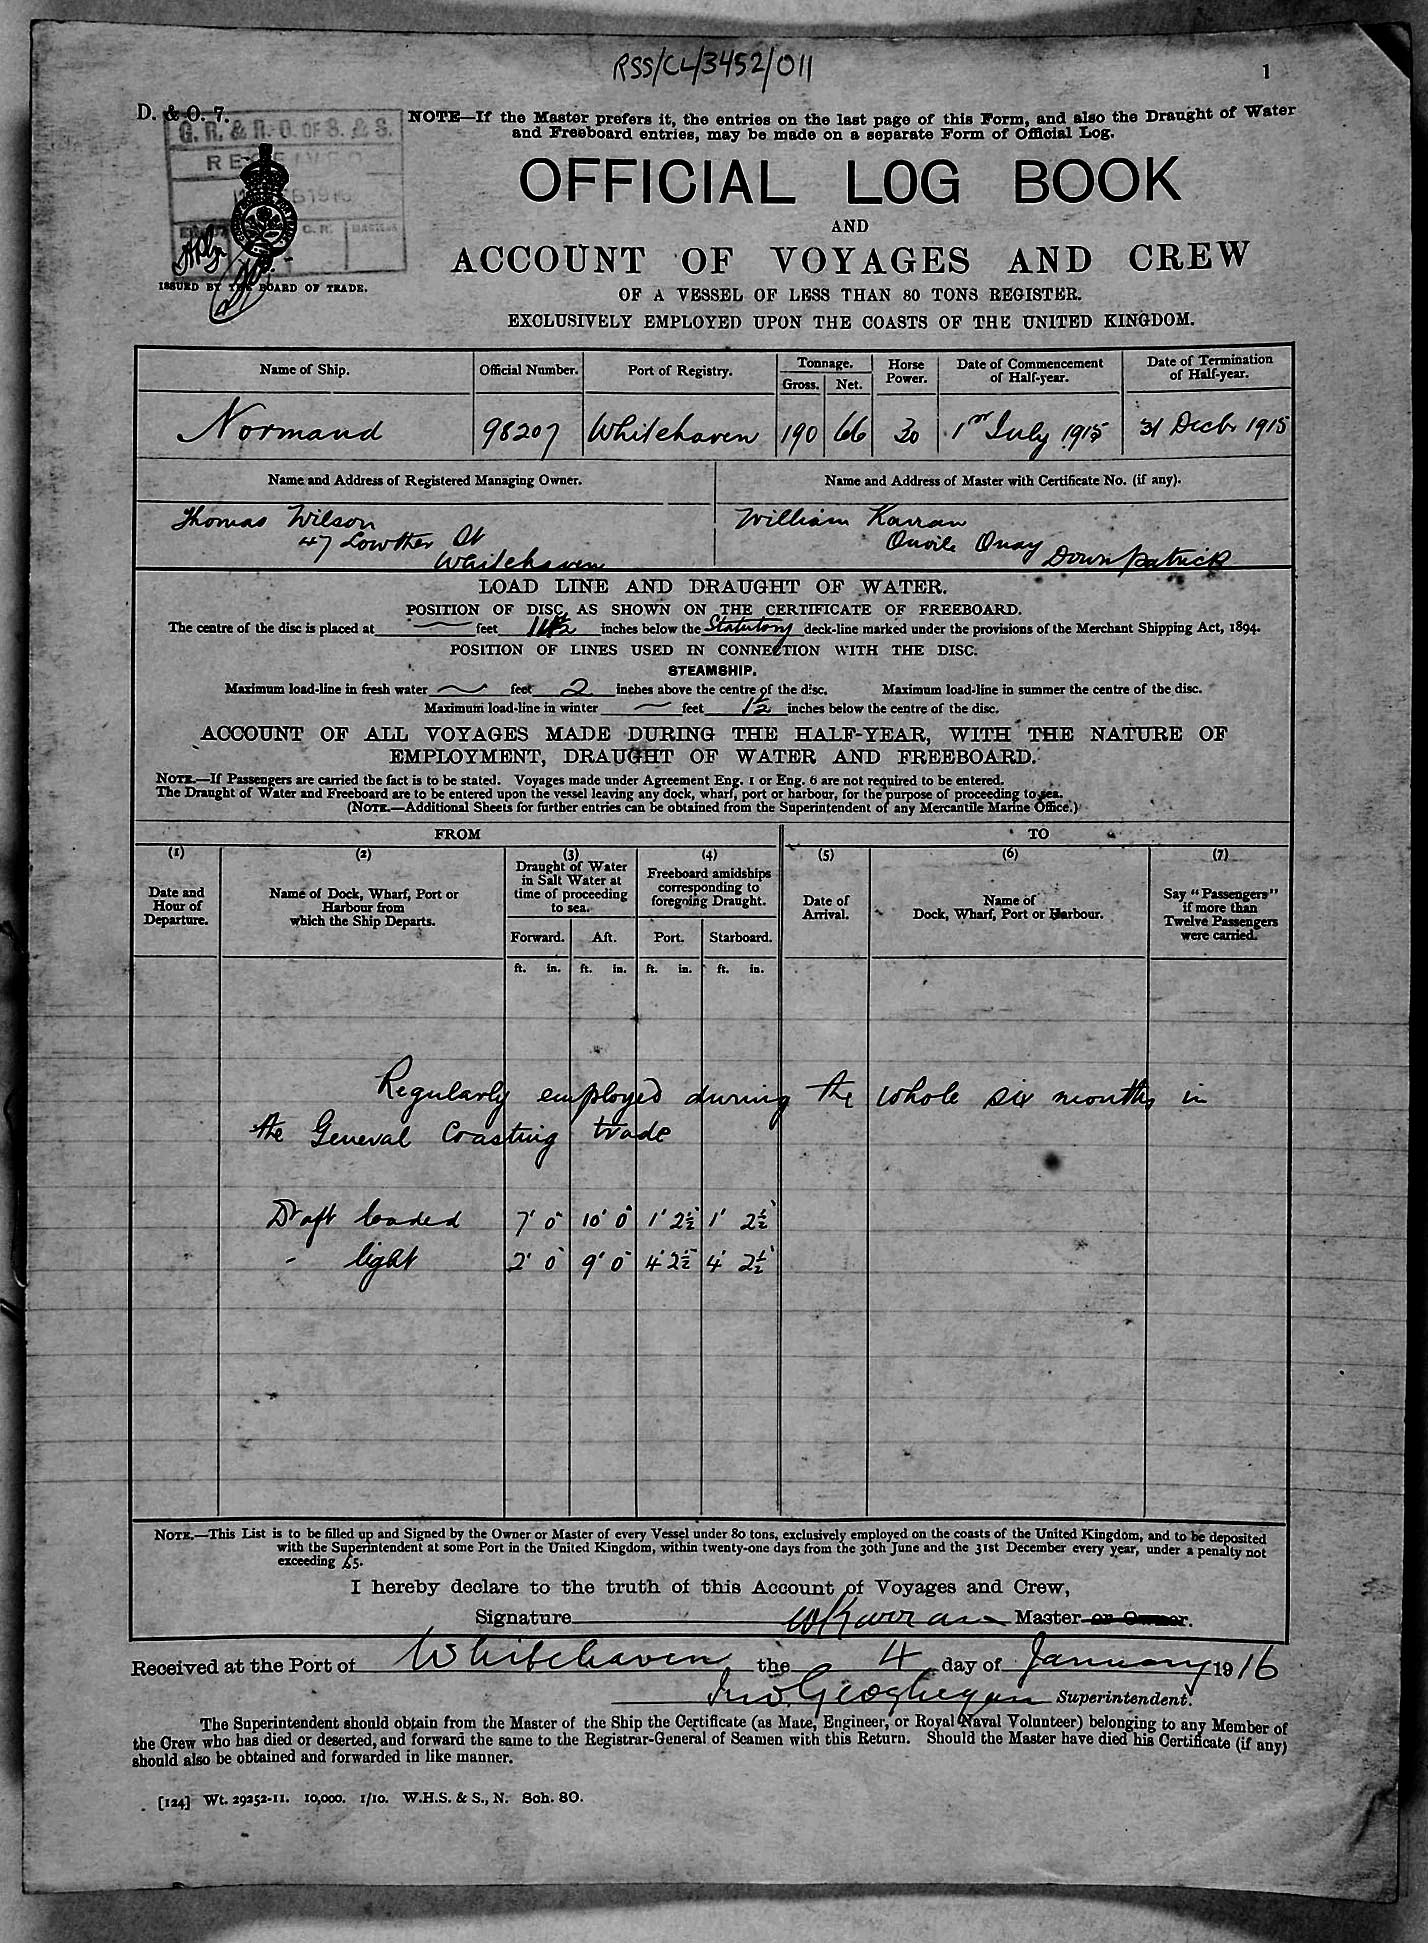 RSS/CL/3452/011
1
D. & O. 7.
G. R. & R. O. OF S. & S.
RECEIVED
NOTE—If the Master prefers it, the entries on the last page of this Form, and also the Draught of Water
and Freeboard entries, may be made on a separate Form of Official Log.
OFFICIAL LOG BOOK
AND
ACCOUNT OF VOYAGES AND CREW
ISSUED BY THE BOARD OF TRADE.
OF A VESSEL OF LESS THAN 80 TONS REGISTER.
EXCLUSIVELY EMPLOYED UPON THE COASTS OF THE UNITED KINGDOM.
Name of Ship. Official Number. Port of Registry. Tonnage. Gross. Net. Horse Power. Date of Commencement of Half-year. Date of Termination of Half-year.
Normand 98207 Whitehaven 190 66 30 1st July 1915 31 Decbr 1915
Name and Address of Registered Managing Owner. Name and Address of Master with Certificate No. (if any).
Thomas Wilson William Karran
47 Lowther St Quoile Quay
Whitehaven Downpatrick
LOAD LINE AND DRAUGHT OF WATER.
POSITION OF DISC, AS SHOWN ON THE CERTIFICATE OF FREEBOARD.
The centre of the disc is placed at feet inches below the Statutory deck-line marked under the provisions of the Merchant Shipping Act, 1894.
POSITION OF LINES USED IN CONNECTION WITH THE DISC.
STEAMSHIP.
Maximum load-line in fresh water — feet 2 inches above the centre of the disc. Maximum load-line in summer the centre of the disc.
Maximum load-line in winter — feet 1½ inches below the centre of the disc.
ACCOUNT OF ALL VOYAGES MADE DURING THE HALF-YEAR, WITH THE NATURE OF
EMPLOYMENT, DRAUGHT OF WATER AND FREEBOARD.
NOTE.—If Passengers are carried the fact is to be stated. Voyages made under Agreement Eng. 1 or Eng. 6 are not required to be entered.
The Draught of Water and Freeboard are to be entered upon the vessel leaving any dock, wharf, port or harbour, for the purpose of proceeding to sea.
(NOTE.—Additional Sheets for further entries can be obtained from the Superintendent of any Mercantile Marine Office.)
FROM TO
(1) (2) (3) (4) (5) (6) (7)
Date and Hour of Departure. Name of Dock, Wharf, Port or Harbour from which the Ship Departs. Draught of Water in Salt Water at time of proceeding to sea. Freeboard amidships corresponding to foregoing Draught. Date of Arrival. Name of Dock, Wharf, Port or Harbour. Say "Passengers" if more than Twelve Passengers were carried.
Forward. Aft. Port. Starboard.
ft. in. ft. in. ft. in. ft. in.
Regularly employed during the whole six months in
the General Coasting trade
Draft loaded 7' 0" 10' 0" 1' 2½" 1' 2½"
" light 2' 0" 9' 0" 4' 2½" 4' 2½"
NOTE.—This List is to be filled up and Signed by the Owner or Master of every Vessel under 80 tons, exclusively employed on the coasts of the United Kingdom, and to be deposited
with the Superintendent at some Port in the United Kingdom, within twenty-one days from the 30th June and the 31st December every year, under a penalty not
exceeding £5.
I hereby declare to the truth of this Account of Voyages and Crew,
Signature W Karran Master or Owner.
Received at the Port of Whitehaven the 4 day of January 1916
Jno. Geoghegan Superintendent.
The Superintendent should obtain from the Master of the Ship the Certificate (as Mate, Engineer, or Royal Naval Volunteer) belonging to any Member of
the Crew who has died or deserted, and forward the same to the Registrar-General of Seamen with this Return. Should the Master have died his Certificate (if any)
should also be obtained and forwarded in like manner.
[124] Wt. 29252-11. 10,000. 1/10. W.H.S. & S., N. Sch. 80.